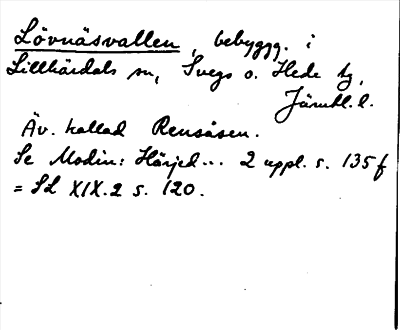 Lövnäsvallen, bebygg. i
Lillhärdals sn, Svegs o. Hede tg,
Jämtl. l.
Äv. kallad Rensåsen.
Se Modin: Härjed... 2 uppl. s. 135 f
= SL XIX.2 s. 120.